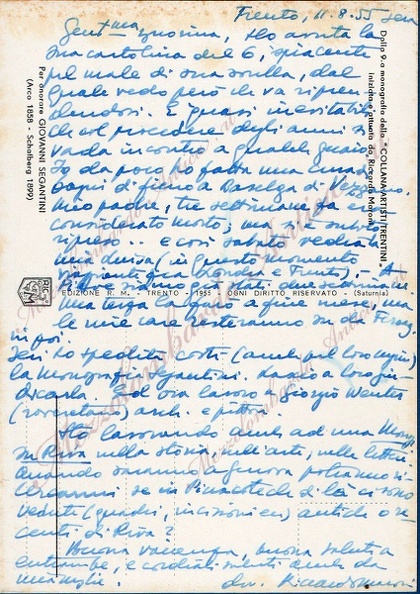 Trento, 11.8.55 sera
Gent.ma signorina, Ho avuto la
sua cartolina del 6, spiacente
pel male di sua sorella, dal
quale vedo però che va ripren-
dendosi. È quasi inevitabile
che col procedere degli anni si
vada incontro a qualche guaio.
Io da poco ho fatto una cura di
bagni di fieno a
mio padre, tre settimane fa era
considerato morto; ma s'è subito
ripreso.. e così sabato
una (in questo momento
Londra e Trento). – A
siamo già stati due settimane
Ma terza
le mie care resteranno su da
in poi.
Ieri ho spedito costì (anche pel loro
la Monografia Segantini. Radio a loro
Ed ora lavoro a Giorgio Wenter
(roveretano) arch. e pittore.
Sto lavorando anche ad una Mono
su Riva nella storia, nell'arte, nelle lettere
Quando saranno a Genova potranno
se in Pinacoteche di là ci sono
vedute (quadri, incisioni ecc) antiche o re-
centi di Riva?
Buona vacanza, buona salute a
entrambe, e cordiali saluti anche da
mia moglie.
dev. Riccardo Maroni
Dalla 9.a monografia della "COLLANA ARTISTI TRENTINI
iniziata e attuata da Riccardo Maroni
Per onorare GIOVANNI SEGANTINI
(Arco 1858 - Schafberg 1899)
EDIZIONE R. M. - TRENTO - 1955 - OGNI DIRITTO RISERVATO - (Saturnia)